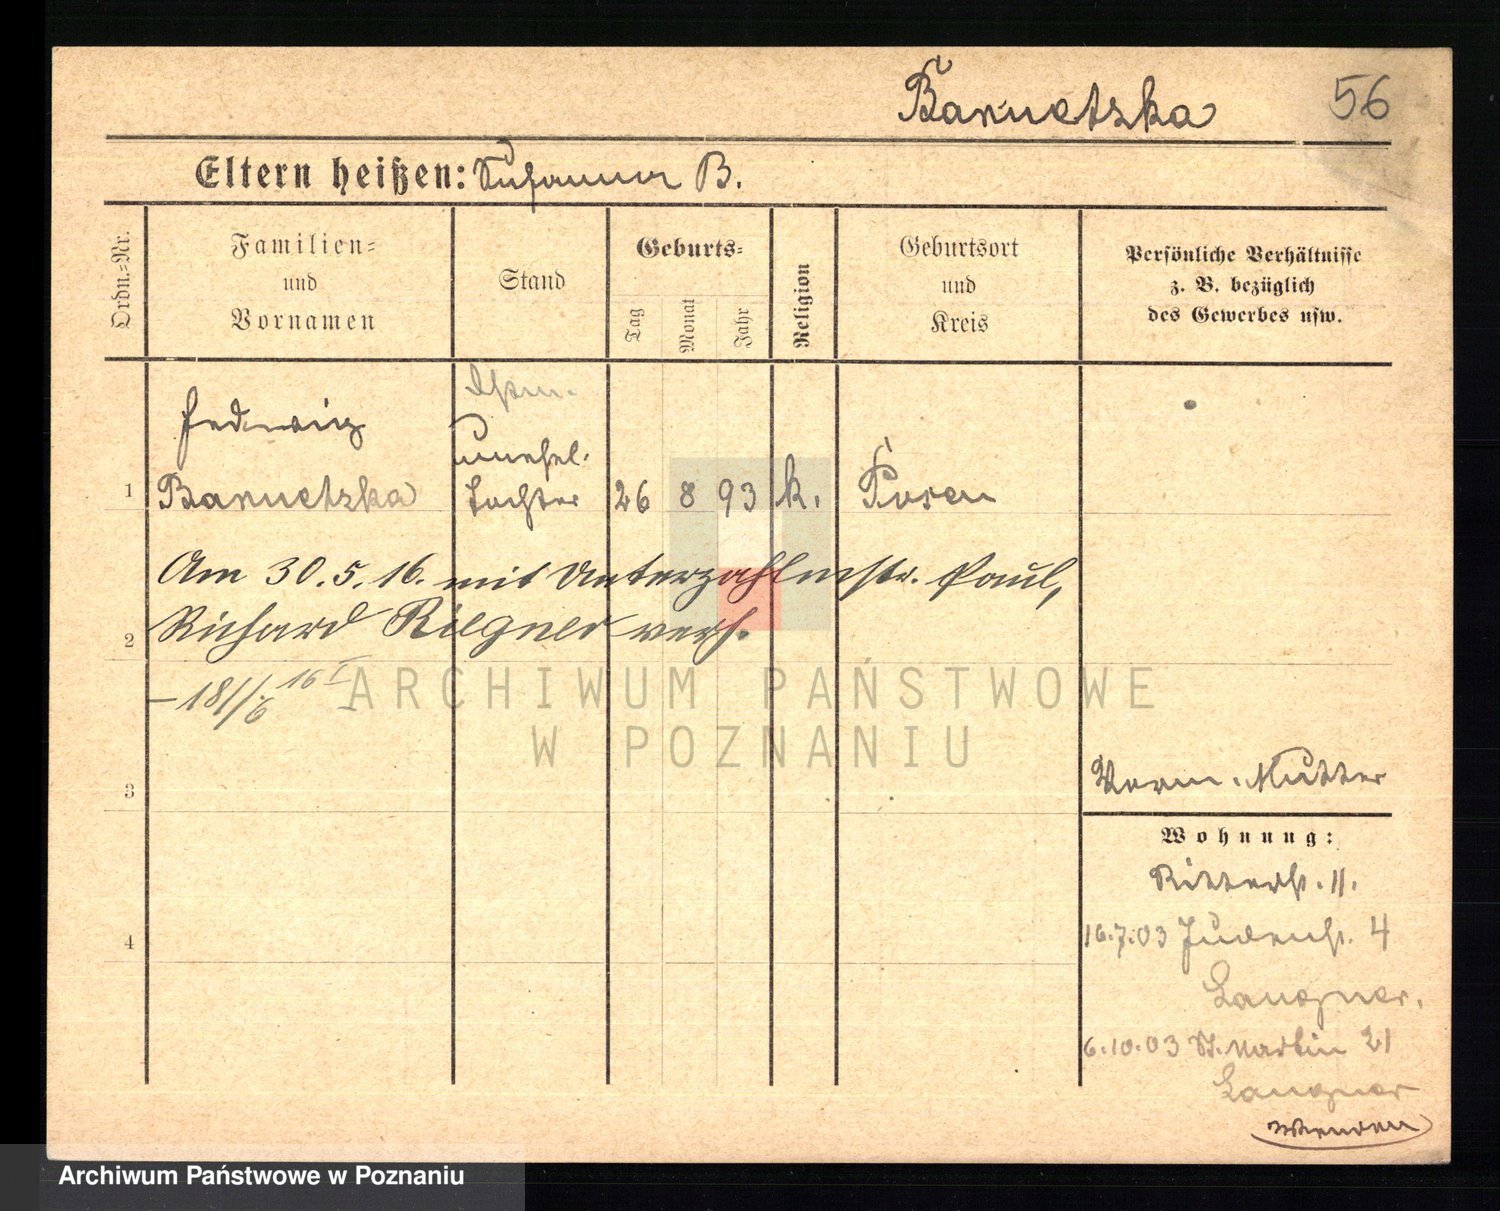 Baruetzka 56
Eltern heißen: Susanna B.
Ordn.-Nr.
Familien-
und
Vornamen
Stand
Geburts-
Tag
Monat
Jahr
Religion
Geburtsort
und
Kreis
Persönliche Verhältnisse
z. B. bezüglich
des Gewerbes usw.
Hedwig
unehel.
1 Baruetzka Tochter 26 8 93 k. Posen
Am 30.5.16. mit Unterzahlmstr. Paul,
2 Richard Riegner verh.
3
Vorm. Mutter
Wohnung:
Ritterstr. 11.
16.7.03 Judenstr. 4
4
Langner.
6.10.03 St. Martin 21
Langner
Wenden
ARCHIWUM PAŃSTWOWE
W POZNANIU
Archiwum Państwowe w Poznaniu